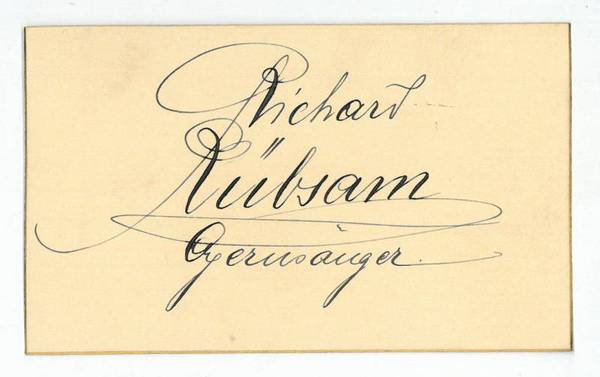 Richard
Rübsam
Opernsänger.